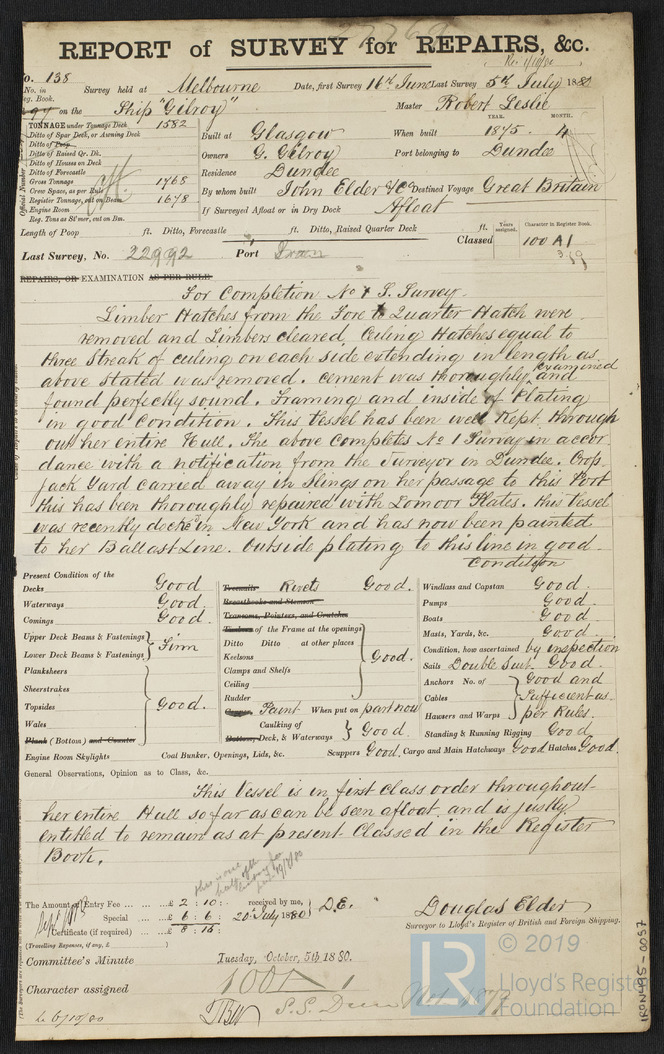 REPORT of SURVEY for REPAIRS, &c.
Rec 1/10/80
No. 138 Survey held at Melbourne Date, first Survey 16th June Last Survey 5th July 1880
No. in Reg. Book.
on the Ship "Gilroy" Master Robert Leslie
TONNAGE under Tonnage Deck 1582
Ditto of Spar Deck, or Awning Deck
Ditto of Poop
Ditto of Raised Qr. Dk.
Ditto of Houses on Deck
Ditto of Forecastle
Gross Tonnage 1768
Crew Space, as per Rule
Register Tonnage, cut on Beam 1678
Engine Room
Reg. Tons as St'mer, cut on Bm.
Official Number
YEAR. MONTH.
Built at Glasgow When built 1875. 4
Owners G. Gilroy Port belonging to Dundee
Residence Dundee
By whom built John Elder & Co Destined Voyage Great Britain
If Surveyed Afloat or in Dry Dock Afloat
Length of Poop ft. Ditto, Forecastle ft. Ditto, Raised Quarter Deck ft.
Years assigned. Character in Register Book.
Classed 100 A1
Last Survey, No. 22992 Port Iron
REPAIRS, OR EXAMINATION AS PER RULE
For Completion No 1 S. Survey.
Limber Hatches from the Fore to Quarter Hatch were
removed and Limbers cleared, Ceiling Hatches equal to
three Streak of ceiling on each side extending in length as
above stated was removed. cement was thoroughly examined and
found perfectly sound. Framing and inside of Plating
in good condition. This Vessel has been well Kept through
out her entire Hull. The above completes No 1 Survey in accor
dance with a notification from the Surveyor in Dundee. Crop
Jack Yard carried away in Slings on her passage to this Port
this has been thoroughly repaired with Lomoor Plates. this Vessel
was recently docked in New York and has now been painted
to her Ballast Line. outside plating to this line in good
condition
Present Condition of the
Decks Good
Waterways Good
Comings Good.
Upper Deck Beams & Fastenings
Lower Deck Beams & Fastenings Firm
Planksheers
Sheerstrakes
Topsides Good.
Wales
Plank (Bottom) and Counter
Engine Room Skylights
Treenails Rivets Good.
Breasthooks and Stemson
Transoms, Pointers, and Crutches
Timbers of the Frame at the openings
Ditto Ditto at other places
Keelsons Good.
Clamps and Shelfs
Ceiling
Rudder
Copper Paint When put on part now
Caulking of
Bottom, Deck, & Waterways Good
Coal Bunker, Openings, Lids, &c. Scuppers Good. Cargo and Main Hatchways Good Hatches Good.
Windlass and Capstan Good.
Pumps Good.
Boats Good.
Masts, Yards, &c. Good
Condition, how ascertained by inspection
Sails Double Suit. Good.
Anchors No. of Good and
Cables Sufficient as
Hawsers and Warps per Rules.
Standing & Running Rigging Good
General Observations, Opinion as to Class, &c.
This Vessel is in first class order throughout
her entire Hull so far as can be seen afloat. and is justly
entitled to remain as at present Classed in the Register
Book.
The Amount of Entry Fee £ 2 : 10 : received by me,
Special £ 6 : 6 : 20 July 1880 D.E.
Certificate (if required) £ 8 : 16 :
(Travelling Expenses, if any, £ )
Douglas Elder
Surveyor to Lloyd's Register of British and Foreign Shipping.
Committee's Minute Tuesday, October, 5th 1880.
Character assigned 100 A 1
26/10/80
IRON495-0057
© 2019
LR
Lloyd's Register
Foundation